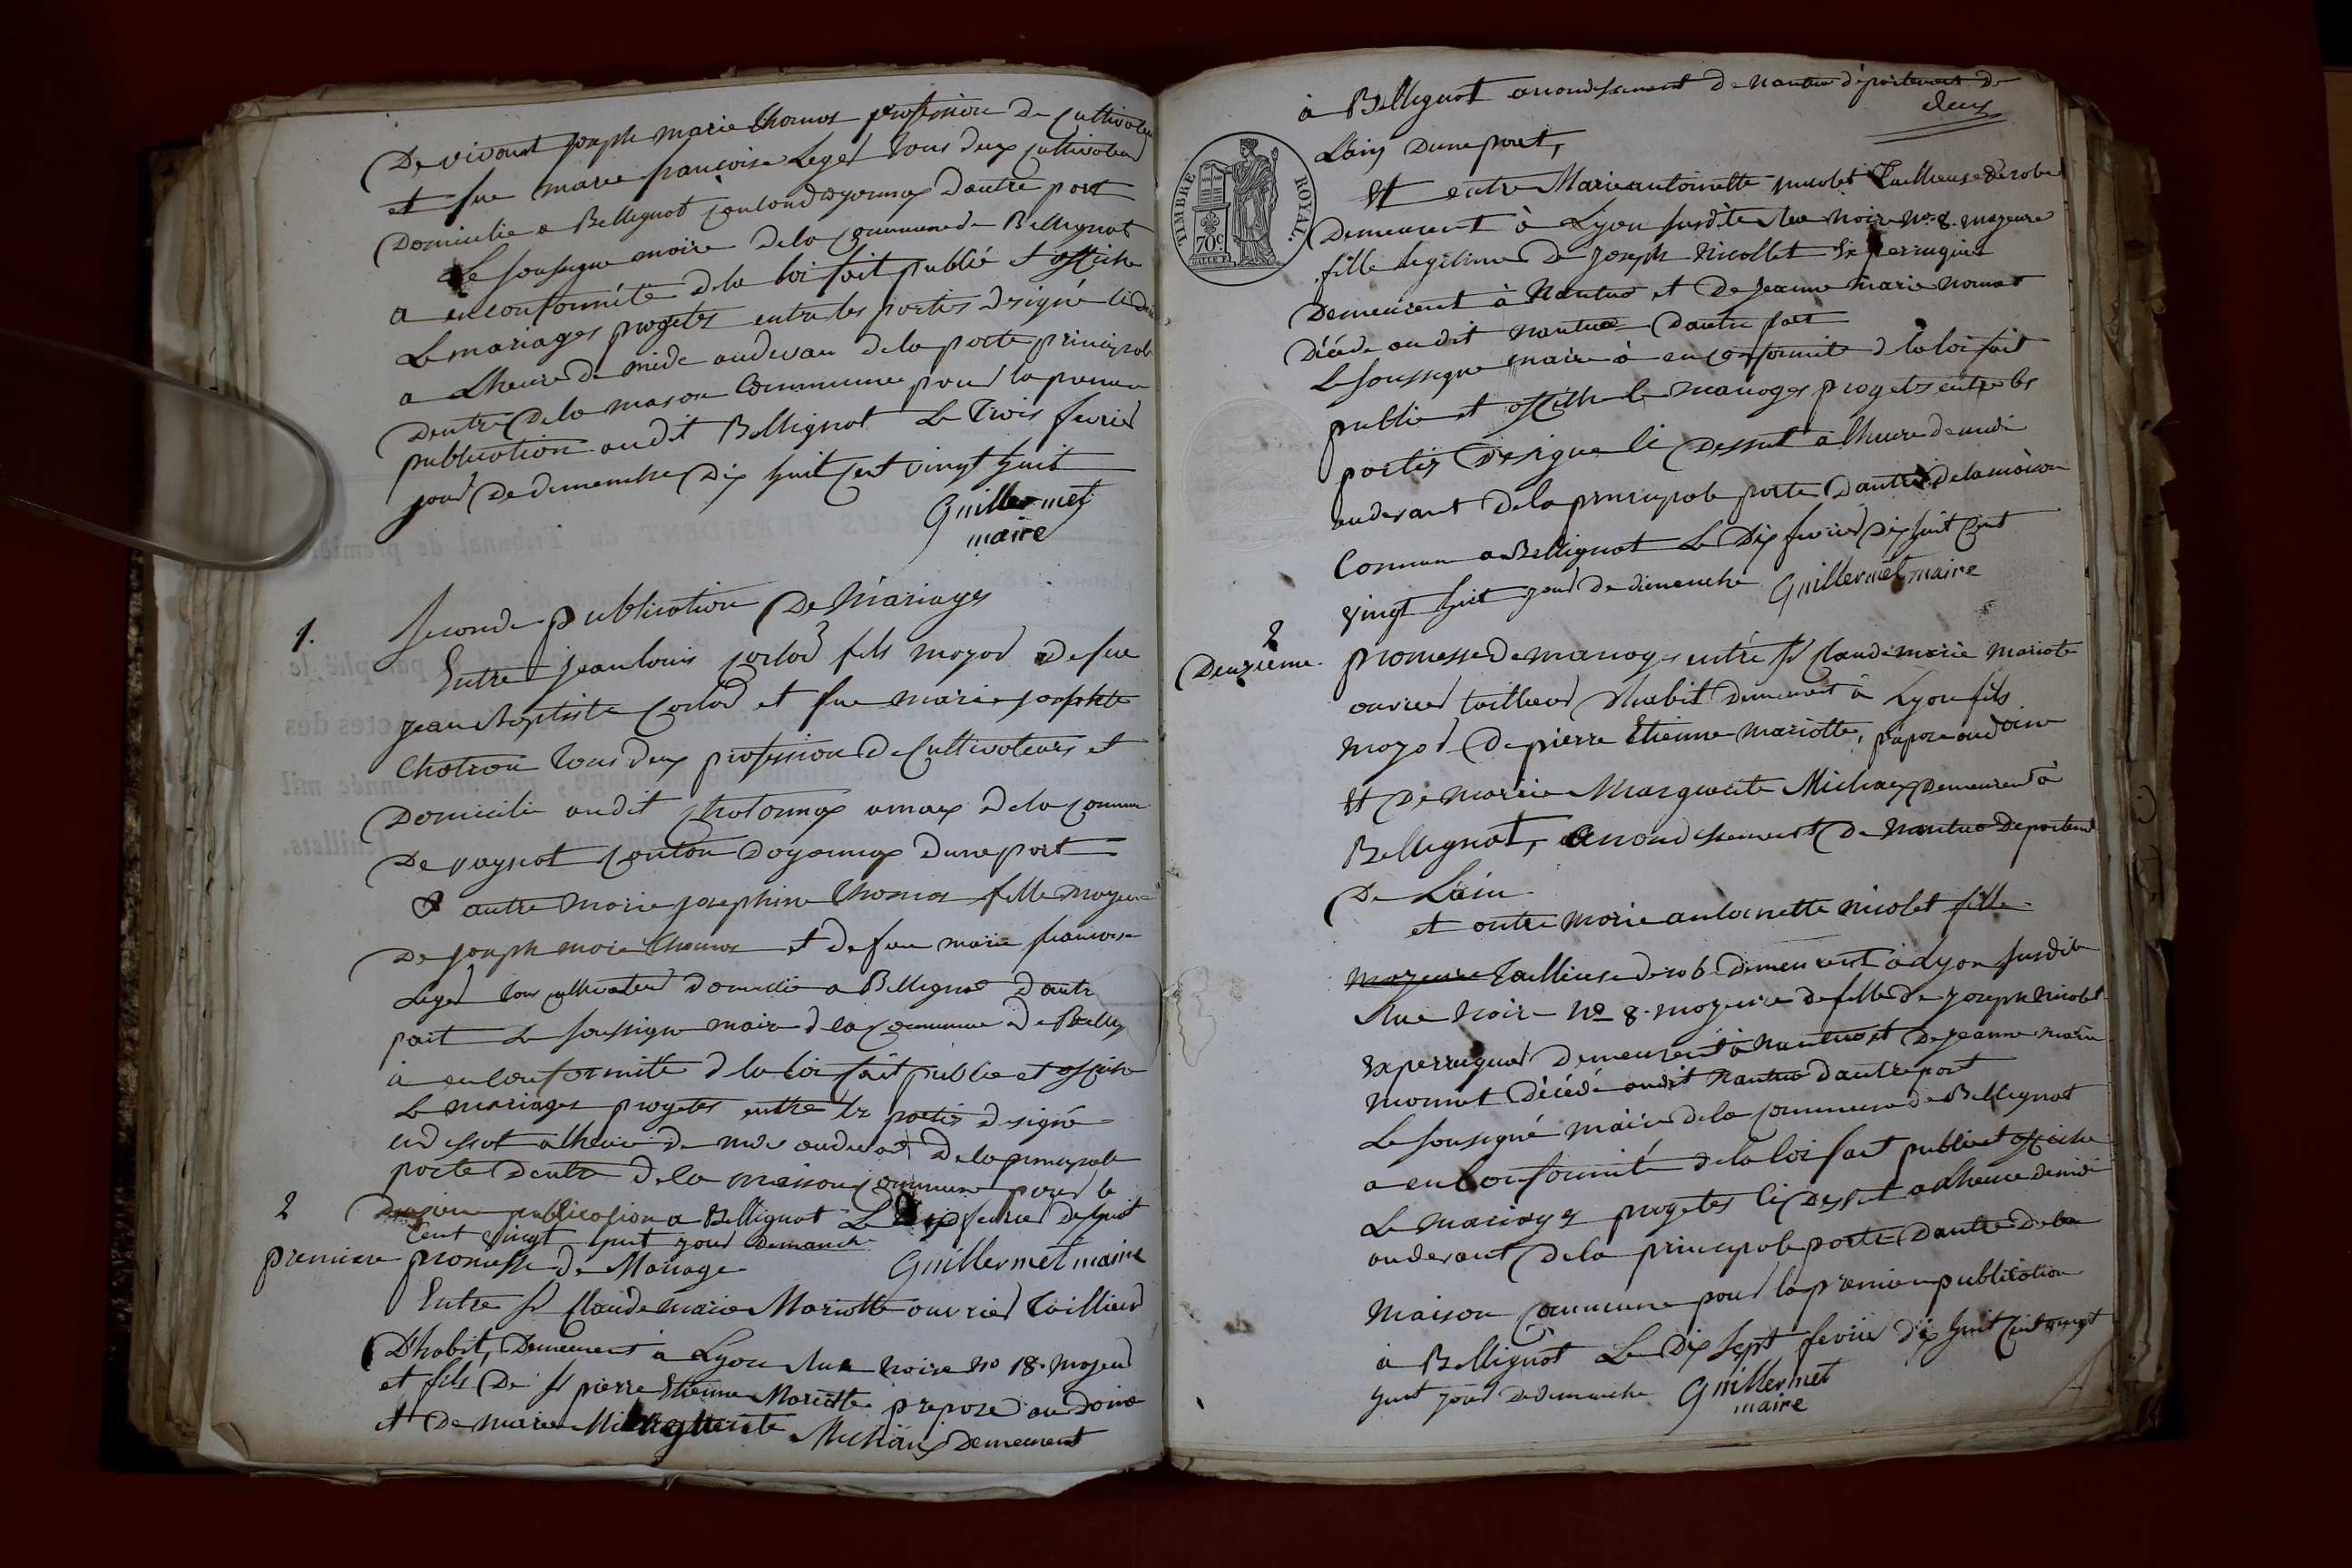 De vivant joseph marie thomas profession de cultivateur
et fue marie francoise Leger tous deux cultivateur
Domicilie a Bellignat canton doyonnax dautre part
Le sousigne maire de la commune de Bellignat
a en conformité de la loi fait publié et affiche
Le mariages progetes entre les parties designé ci des
a Lheure de midi audevan de la porte principale
Dentre de la maison Commune pour la premiere
publication audit Bellignat Le Trois fevrier
jour de dimenche Dix huit cent vingt huit
Guillermet
maire
1. Seconde publication De Mariages
Entre jean louis carlod fils majeur de feu
jean baptiste carlod et fue marie josephte
Chatron tous deux profession de Cultivateurs et
Domicilie audit chatonnax amax de la commune
De veyziat canton doyonnax dune part
& autre marie josephine thomas fille majeure
De joseph marie thomas et de fue marie francoise
Leger tous cultivateur domicilie a Bellignat dautre
part Le soussigne maire de la commune de Bellig
a en conformité de la loi fait publie et affiche
Le mariages progetes entre les parties designé
ci dessut a lheure de midi audevant de la principale
porte dentre de la maison commune pour la
2 Deuxieme publication a Bellignat Le Dix fevrier dix huit
Cent vingt huit jour demanche
premiere promesse de Mariage Guillermet maire
Entre sr Claude marie Mariotte ouvrier Taillieur
D'habit, Demeurent à Lyon Rue Noire No 18. majeur
et fils De sr pierre Etienne Mariotte preposé au Doine
et De marie Marguerite Michaux demeurent
à Bellignat arrondissement de nantua département de
deux
TIMBRE ROYAL.
70c
Lain dune part,
Et entre Marie antoinette nicolet Tailleuse de robe
Demeurent à Lyon susdite Rue Noire No. 8. majeure
fille legitime de Joseph Nicollet Ex perruquier
Demeurent à Nantua et De Jeanne Marie Monnet
Décédé audit Nantua Dautre part
Le soussigne maire à en conformite d la loi fait
publie et affiche le mariages progetes entre les
partis Designe Ci Dessut a lheure de midi
audevant de la principale porte Dantré de la maison
Commune a Bellignat Le Dix fevrier Dix huit cent
vingt huit jour de dimenche Guillermet maire
2
Deuxieme. promesse de mariage entre sr Claude marie Mariote
ouvrier tailleur D'habit Demeurent à Lyon fils
major De pierre Etienne Mariotte, preposé au Doine
Et De Marie Marguerite Michaux Demeurent à
Bellignat, arrondissement De Nantua Departement
De Lain
et entre Marie antoinette nicolet fille
majeure Taillieuse de robe demeurent à Lyon susdite
Rue Noire No 8. majeure de fille de Joseph Nicolet
Ex perruquier Demeurent à Nantua et De Jeanne Marie
Monnet Décédé audit Nantua dautre part
Le sousigné maire de la commune de Bellignat
a en Conformité de la loi fait publie et affiche
Le mariages progetes Ci Dessut a Lheure de midi
audevant De la principale porte Dantre De la
Maison commune pour la premiere publication
à Bellignat Le Dix Sept fevrier dix huit Cent vingt
huit jour De dimenche Guillermet
maire